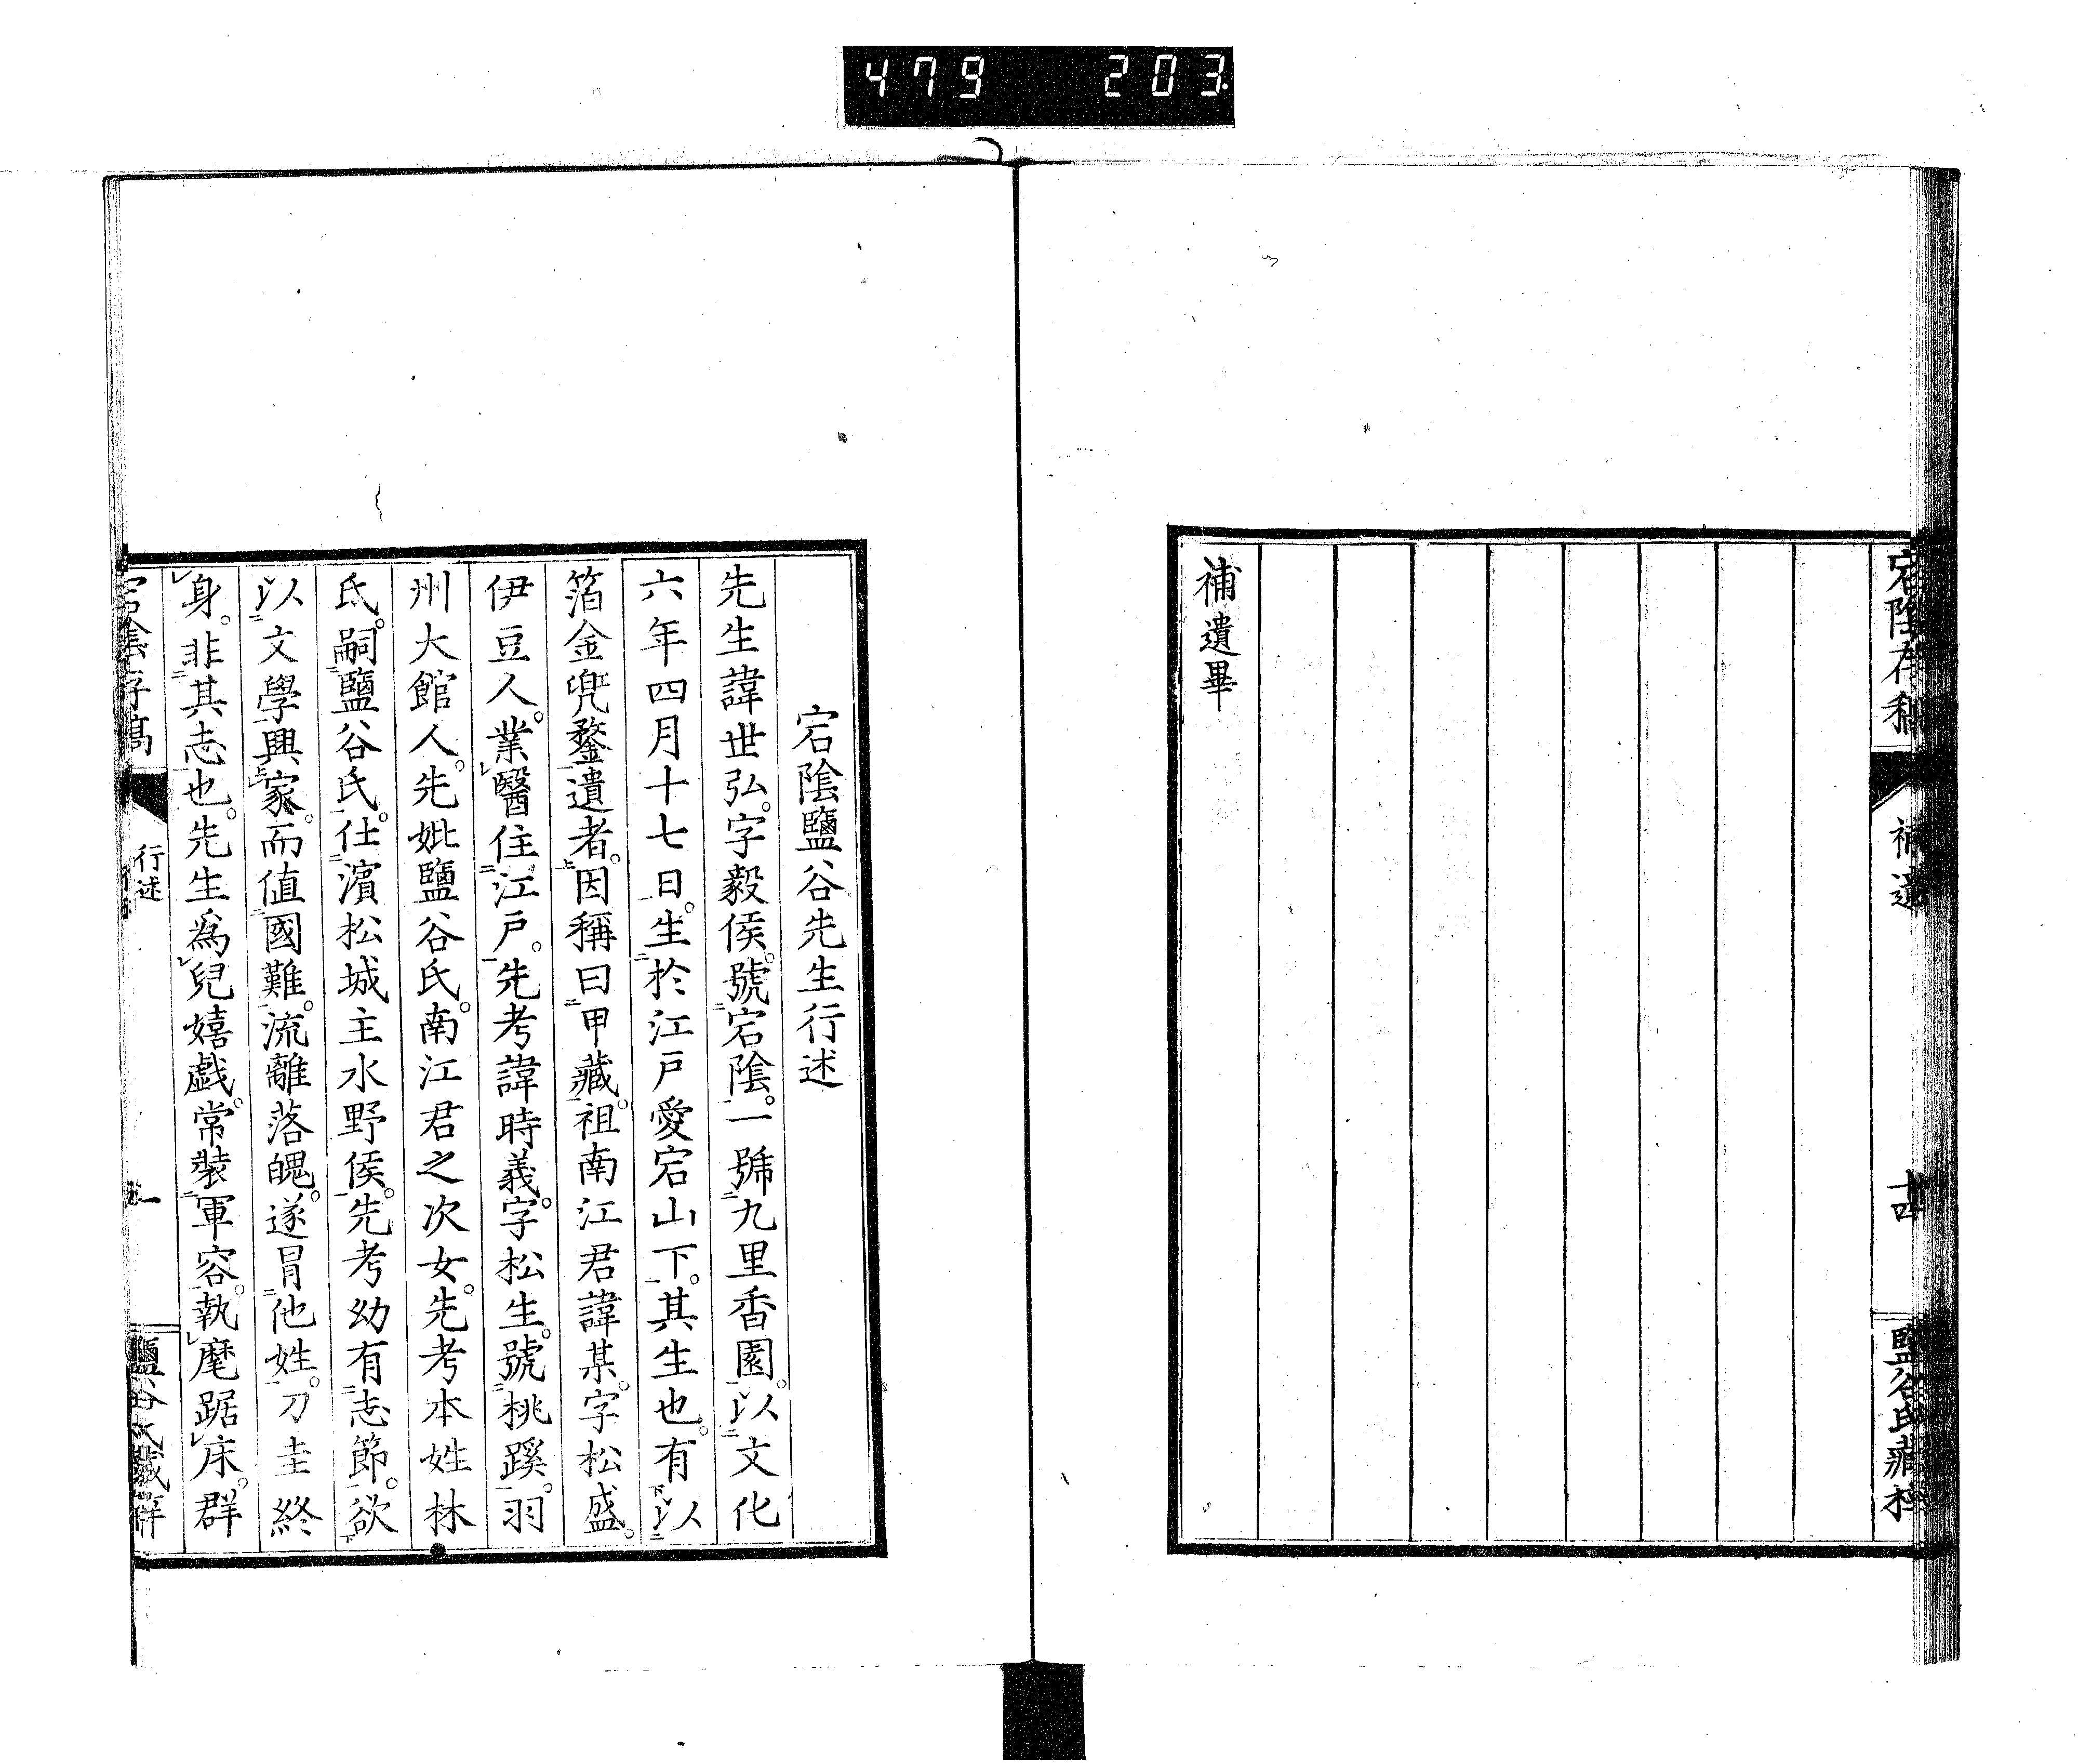 479 203
宕陰存稿
補遺
十四
鹽谷氏藏
補遺畢
宕陰鹽谷先生行述
先生諱世弘。字毅侯。號宕陰。一號九里香園。以文化
六年四月十七日。生於江戸愛宕山下。其生也。有以
箔金兜鍪遺者。因稱曰甲藏。祖南江君諱某。字松盛。
伊豆人。業醫住江戸。先考諱時義。字松生。號桃蹊。羽
州大館人。先妣鹽谷氏。南江君之次女。先考本姓林
氏。嗣鹽谷氏。仕濱松城主水野侯。先考幼有志節。欲
以文學興家。而値國難。流離落魄。遂冐他姓。刀圭終
身。非其志也。先生爲兒嬉戯。常裝軍容。執麾踞床。群
宕陰存稿
行述
一
鹽谷氏藏